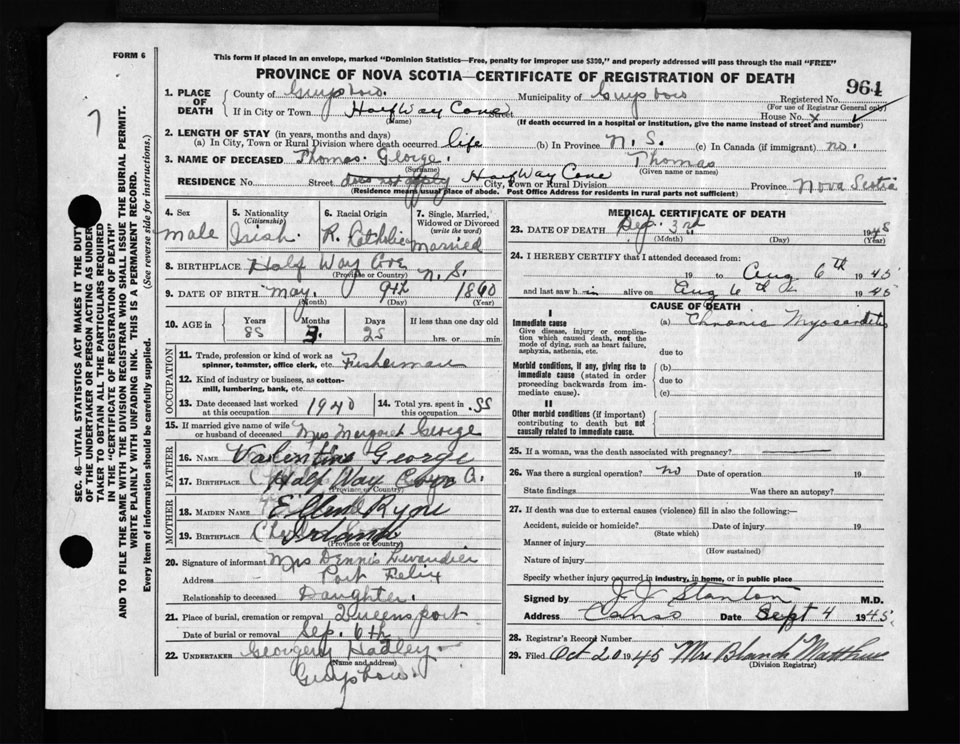 FORM 6
This form if placed in an envelope, marked "Dominion Statistics—Free, penalty for improper use $300," and properly addressed will pass through the mail "FREE"
PROVINCE OF NOVA SCOTIA—CERTIFICATE OF REGISTRATION OF DEATH
964
1. PLACE OF DEATH
County of Guysboro. Municipality of Guysboro Registered No.
(For use of Registrar General only)
If in City or Town Half Way Cove Street House No. x
(Name) (If death occurred in a hospital or institution, give the name instead of street and number)
2. LENGTH OF STAY (in years, months and days)
(a) In City, Town or Rural Division where death occurred life (b) In Province N. S. (c) In Canada (if immigrant) no.
3. NAME OF DECEASED Thomas. George. Thomas
(Surname) (Given name or names)
RESIDENCE No. Street does not apply Half Way Cove City, Town or Rural Division Province Nova Scotia
(Residence means usual place of abode. Post Office Address for residents in rural parts not sufficient)
4. Sex male
5. Nationality (Citizenship) Irish.
6. Racial Origin R. Catholic
7. Single, Married, Widowed or Divorced (write the word) Married
8. BIRTHPLACE Half Way Cove N. S.
(Province or Country)
9. DATE OF BIRTH May. 9th 1860
(Month) (Day) (Year)
10. AGE in Years Months Days If less than one day old
85 3. 25 hrs. or min.
OCCUPATION
11. Trade, profession or kind of work as spinner, teamster, office clerk, etc. Fisherman
12. Kind of industry or business, as cotton-mill, lumbering, bank, etc.
13. Date deceased last worked at this occupation 1940
14. Total yrs. spent in this occupation .55
15. If married give name of wife or husband of deceased Mrs Margaret George
FATHER
16. NAME Valentine George
17. BIRTHPLACE Half Way Cove
(Province or Country)
MOTHER
18. MAIDEN NAME Ellen Ryan
19. BIRTHPLACE Ireland
(Province or Country)
20. Signature of informant Mrs Dennis
Address Port Felix
Relationship to deceased Daughter.
21. Place of burial, cremation or removal Queensport
Date of burial or removal Sep. 6th
22. UNDERTAKER Hadley
(Name and address)
Guysboro.
MEDICAL CERTIFICATE OF DEATH
23. DATE OF DEATH Sep. 3rd 1945
(Month) (Day) (Year)
24. I HEREBY CERTIFY that I attended deceased from:
19 to Aug 6th 1945
and last saw h im alive on Aug 6th 1945
CAUSE OF DEATH
I
Immediate cause
Give disease, injury or complication which caused death, not the mode of dying, such as heart failure, asphyxia, asthenia, etc.
(a) Chronic Myocarditis
due to
Morbid conditions, if any, giving rise to immediate cause (stated in order proceeding backwards from immediate cause).
(b)
due to
(c)
II
Other morbid conditions (if important) contributing to death but not causally related to immediate cause.
25. If a woman, was the death associated with pregnancy?
26. Was there a surgical operation? no Date of operation 19
State findings Was there an autopsy?
27. If death was due to external causes (violence) fill in also the following:—
Accident, suicide or homicide? Date of injury 19
(State which)
Manner of injury
(How sustained)
Nature of injury
Specify whether injury occurred in industry, in home, or in public place
Signed by J J Stanton M.D.
Address Canso Date Sept 4 1945
28. Registrar's Record Number
29. Filed Oct 20 1945 Mrs Blanch Matthews
(Division Registrar)
SEC. 46—VITAL STATISTICS ACT MAKES IT THE DUTY
OF THE UNDERTAKER OR PERSON ACTING AS UNDER-
TAKER TO OBTAIN ALL THE PARTICULARS REQUIRED
IN THE "CERTIFICATE OF REGISTRATION OF DEATH"
AND TO FILE THE SAME WITH THE DIVISION REGISTRAR WHO SHALL ISSUE THE BURIAL PERMIT.
WRITE PLAINLY WITH UNFADING INK. THIS IS A PERMANENT RECORD.
Every item of information should be carefully supplied. (See reverse side for instructions.)